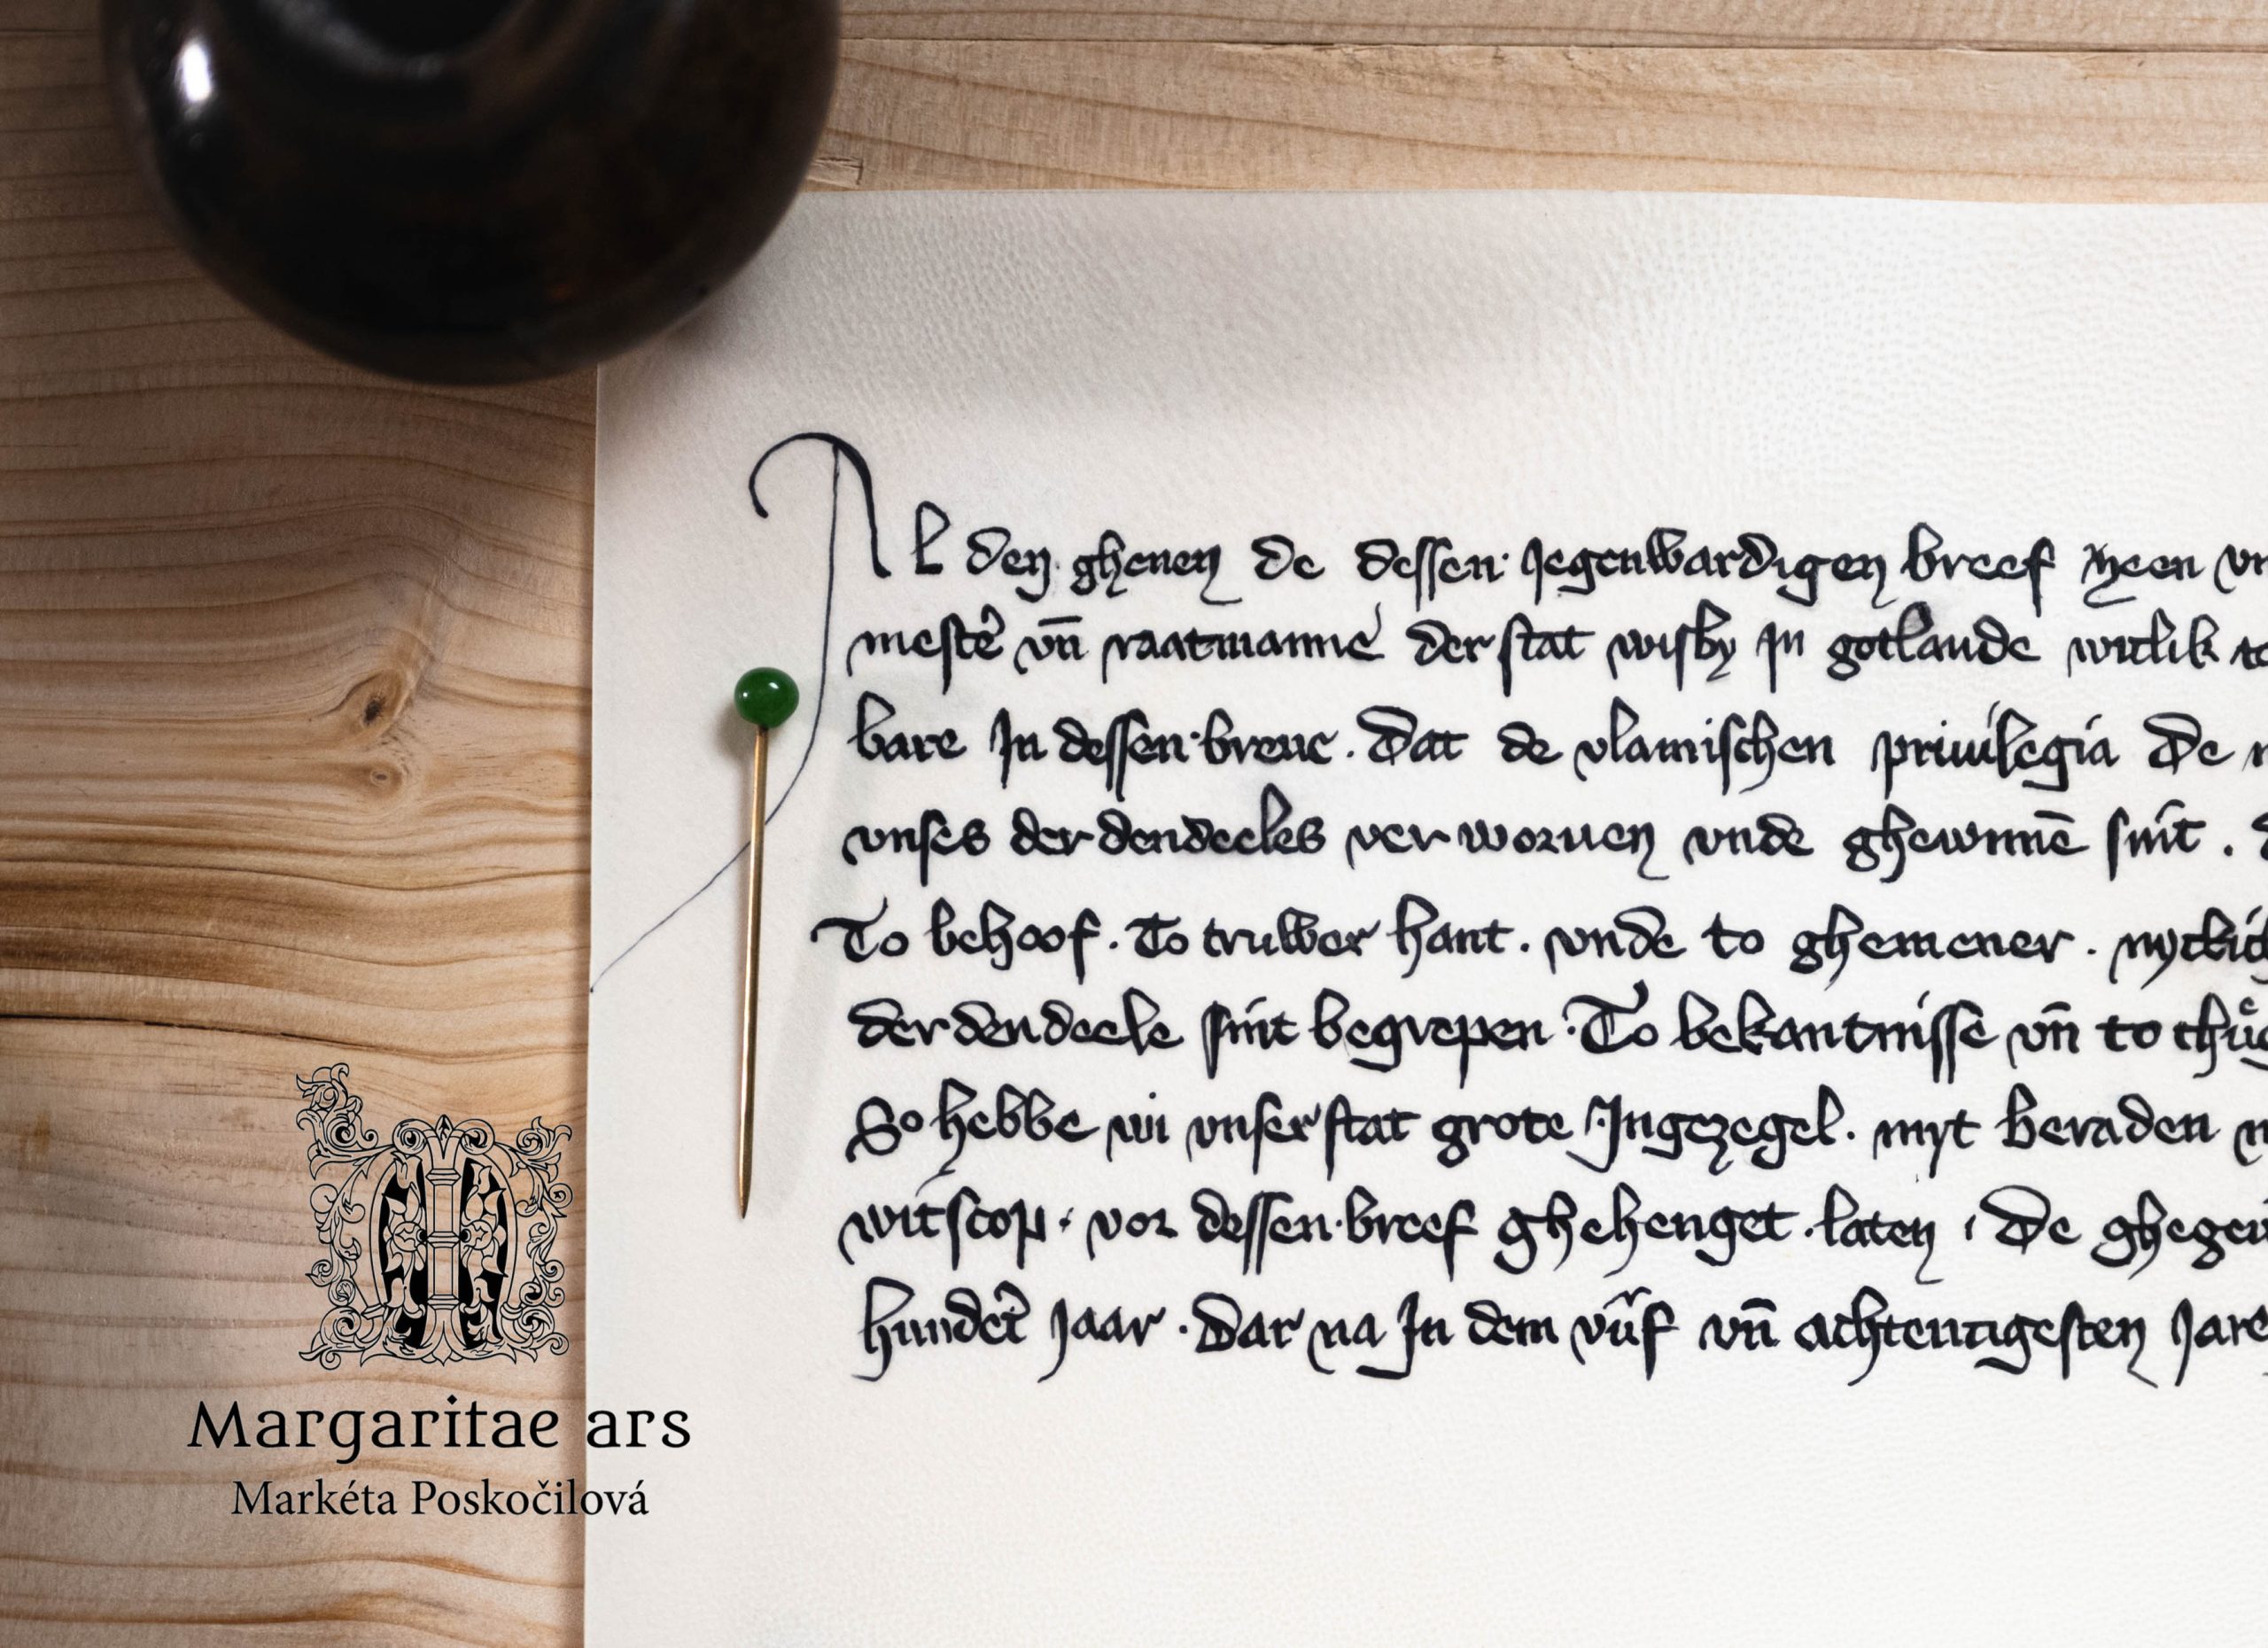 Al den ghenen de dessen· Jegenwardigen breef zeen vn
mester̉ vn̄ raatmanne der stat wisby jn gotlande witlik to
bare Jn dessen·breue. Dat de vlamischen priuilegia De
vnses derdendeeles ver woruen vnde ghewnnē sint .
To behoof. To truwer hant. vnde to ghemener . nytlich
derdendeele sint begrepen · To bekantnisse vn̄ to thůe
So hebbe wi vnser stat grote Jngezegel. myt beraden
witscop · vor dessen·breef ghehenget ·laten · De ghegeu
hundert̉ Jaar · Dar na Jn dem vůf vn̄ achtentigesten Jare
Margaritae ars
Markéta Poskočilová